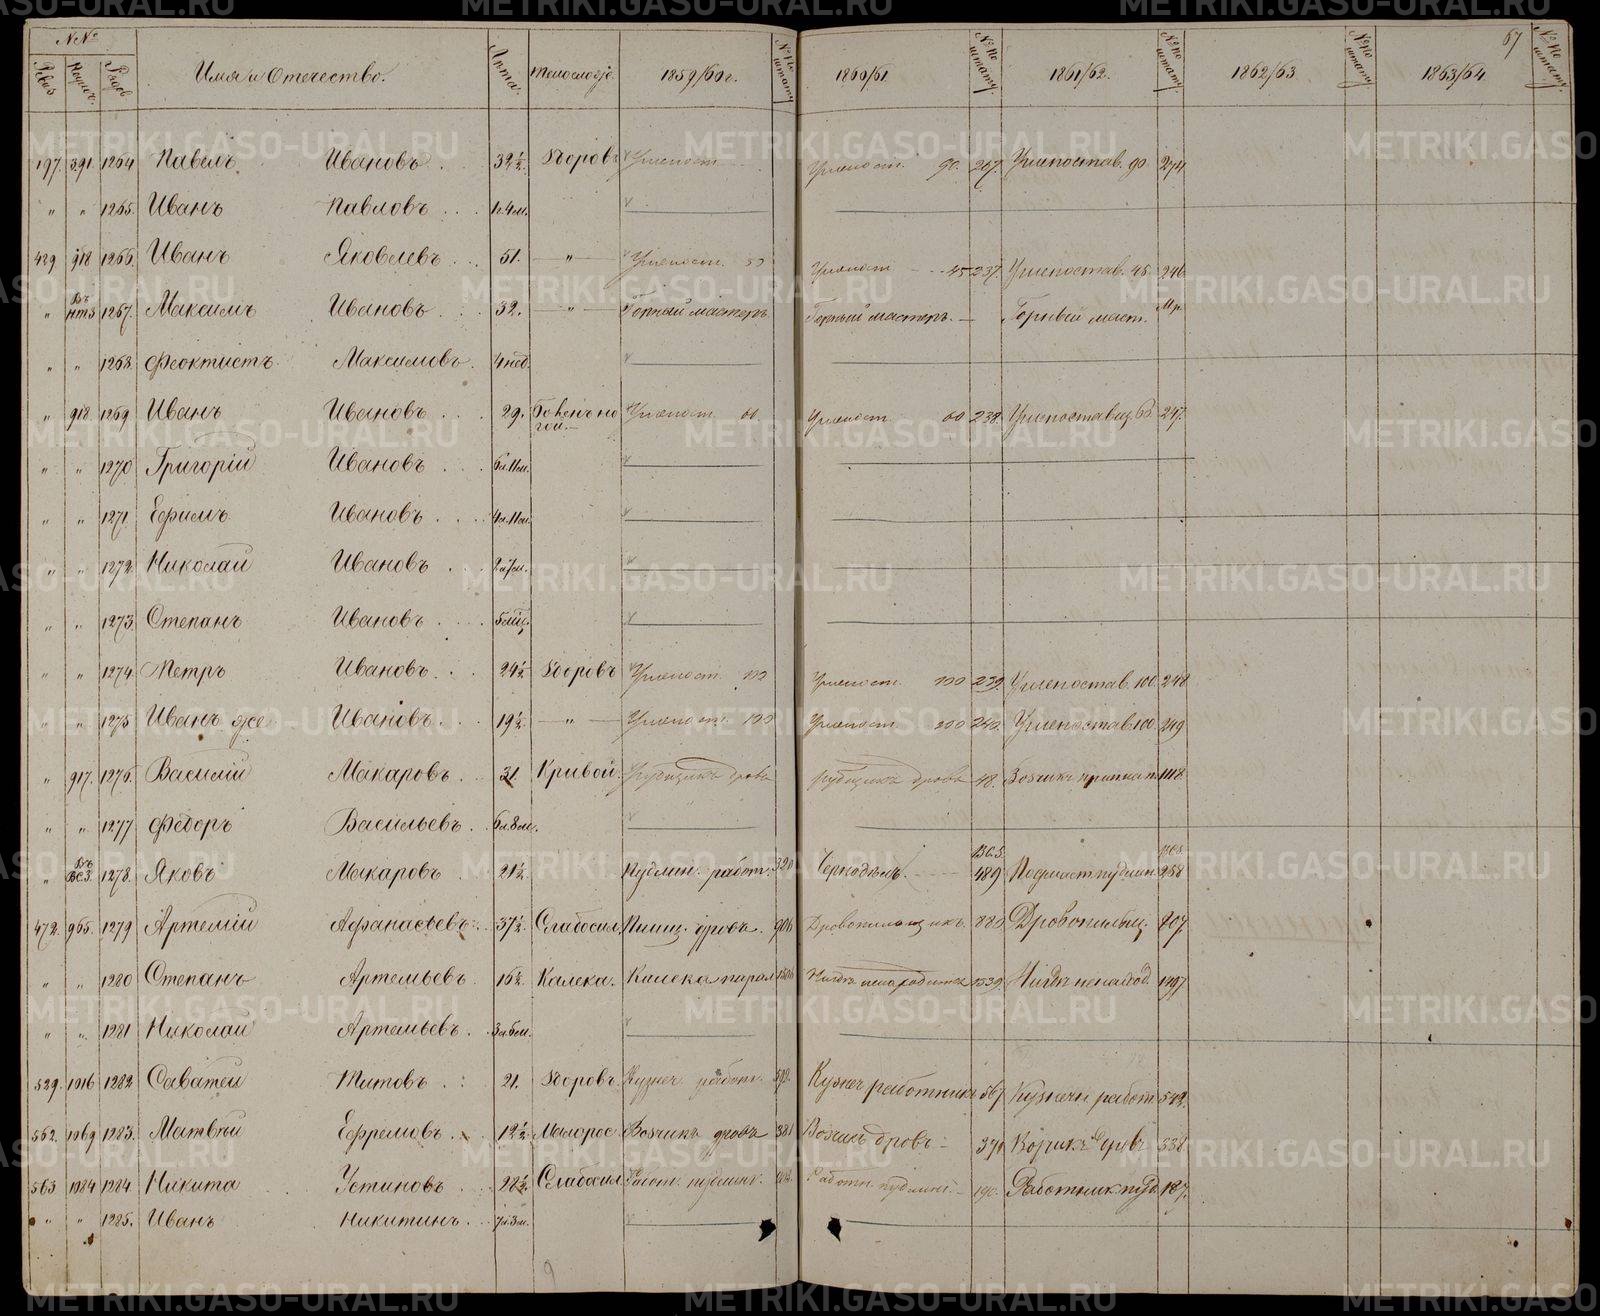 67
№№
Ревиз Подуш. Рядов Имя и Отчество. Лѣта. Телослож. 1859/60 г. № по штату 1860/61 № по штату. 1861/62. № по штату. 1862/63 № по штату 1863/64 № по штату.
197. 391. 1264 Павелъ Ивановъ 32½. Здоровъ Углепост. Углепост. 90. 267. Углепостав. 90. 274
" " 1265. Иванъ Павловъ 1г.4м.
429 918 1266. Иванъ Яковлевъ 51. " Углепост. 50 Углепост 45 237. Углепостав. 45. 246
" Въ НТЗ 1267. Максимъ Ивановъ 32. " Горный мастеръ Горный мастеръ. Горный маст.
" " 1268. Феоктистъ Максимовъ. 4 нед.
" 918 1269. Иванъ Ивановъ 29. Углепост. 60. Углепост 60 238. Углепоставщ. 60. 247.
" " 1270 Григорій Ивановъ 6л.11м.
" " 1271. Ефимъ Ивановъ 4л.11м.
" " 1272. Николай Ивановъ 2л.7м.
" " 1273. Степанъ Ивановъ
" " 1274. Петръ Ивановъ 24½ Здоровъ Углепост. 100 Углепост. 100 239. Углепостав. 100. 248
" " 1275 Иванъ же Ивановъ 19½ " Углепост. 100 Углепост 100 240. Углепостав. 100. 249
" 917. 1276. Василій Макаровъ 31 Кривой. Рубщикъ дровъ Рубщикъ дровъ 48. Возчикъ 1118.
" " 1277 Федоръ Васильевъ 6л.8м.
" Въ ВСЗ. 1278. Яковъ Макаровъ 21½. Пудлин. работ. 321 Чернодѣлъ. ВСЗ. 489 258
472. 965. 1279 Артемій Афанасьевъ 37½. Слабосил. Пилщ. дровъ. 906 Дровопильщикъ. 880 Дровопильщ. 807
" " 1280 Степанъ Артемьевъ 16½. Калека. Калека Нигдѣ ненаходится 1539. Нигдѣ ненаход. 1497
" " 1281 Николай Артемьевъ. 3л.6м.
529. 1016 1282 Саватей Титовъ 21. Здоровъ. Кузнеч. работн. 592. Кузнеч работника 567 Кузнечн работ. 542.
562. 1069 1283. Матвѣй Ефремовъ 12½ Малорос. Возчикъ дровъ 381 Возчикъ дровъ 371 Возчикъ дровъ 338
563 1084 1284. Никита Устиновъ 28½. Слабосил Работ. пудлинг. Работн. пудлинг. 190. Работник. пуд. 187.
" " 1285. Иванъ Никитинъ 7л.3м.
9
METRIKI.GASO-URAL.RU